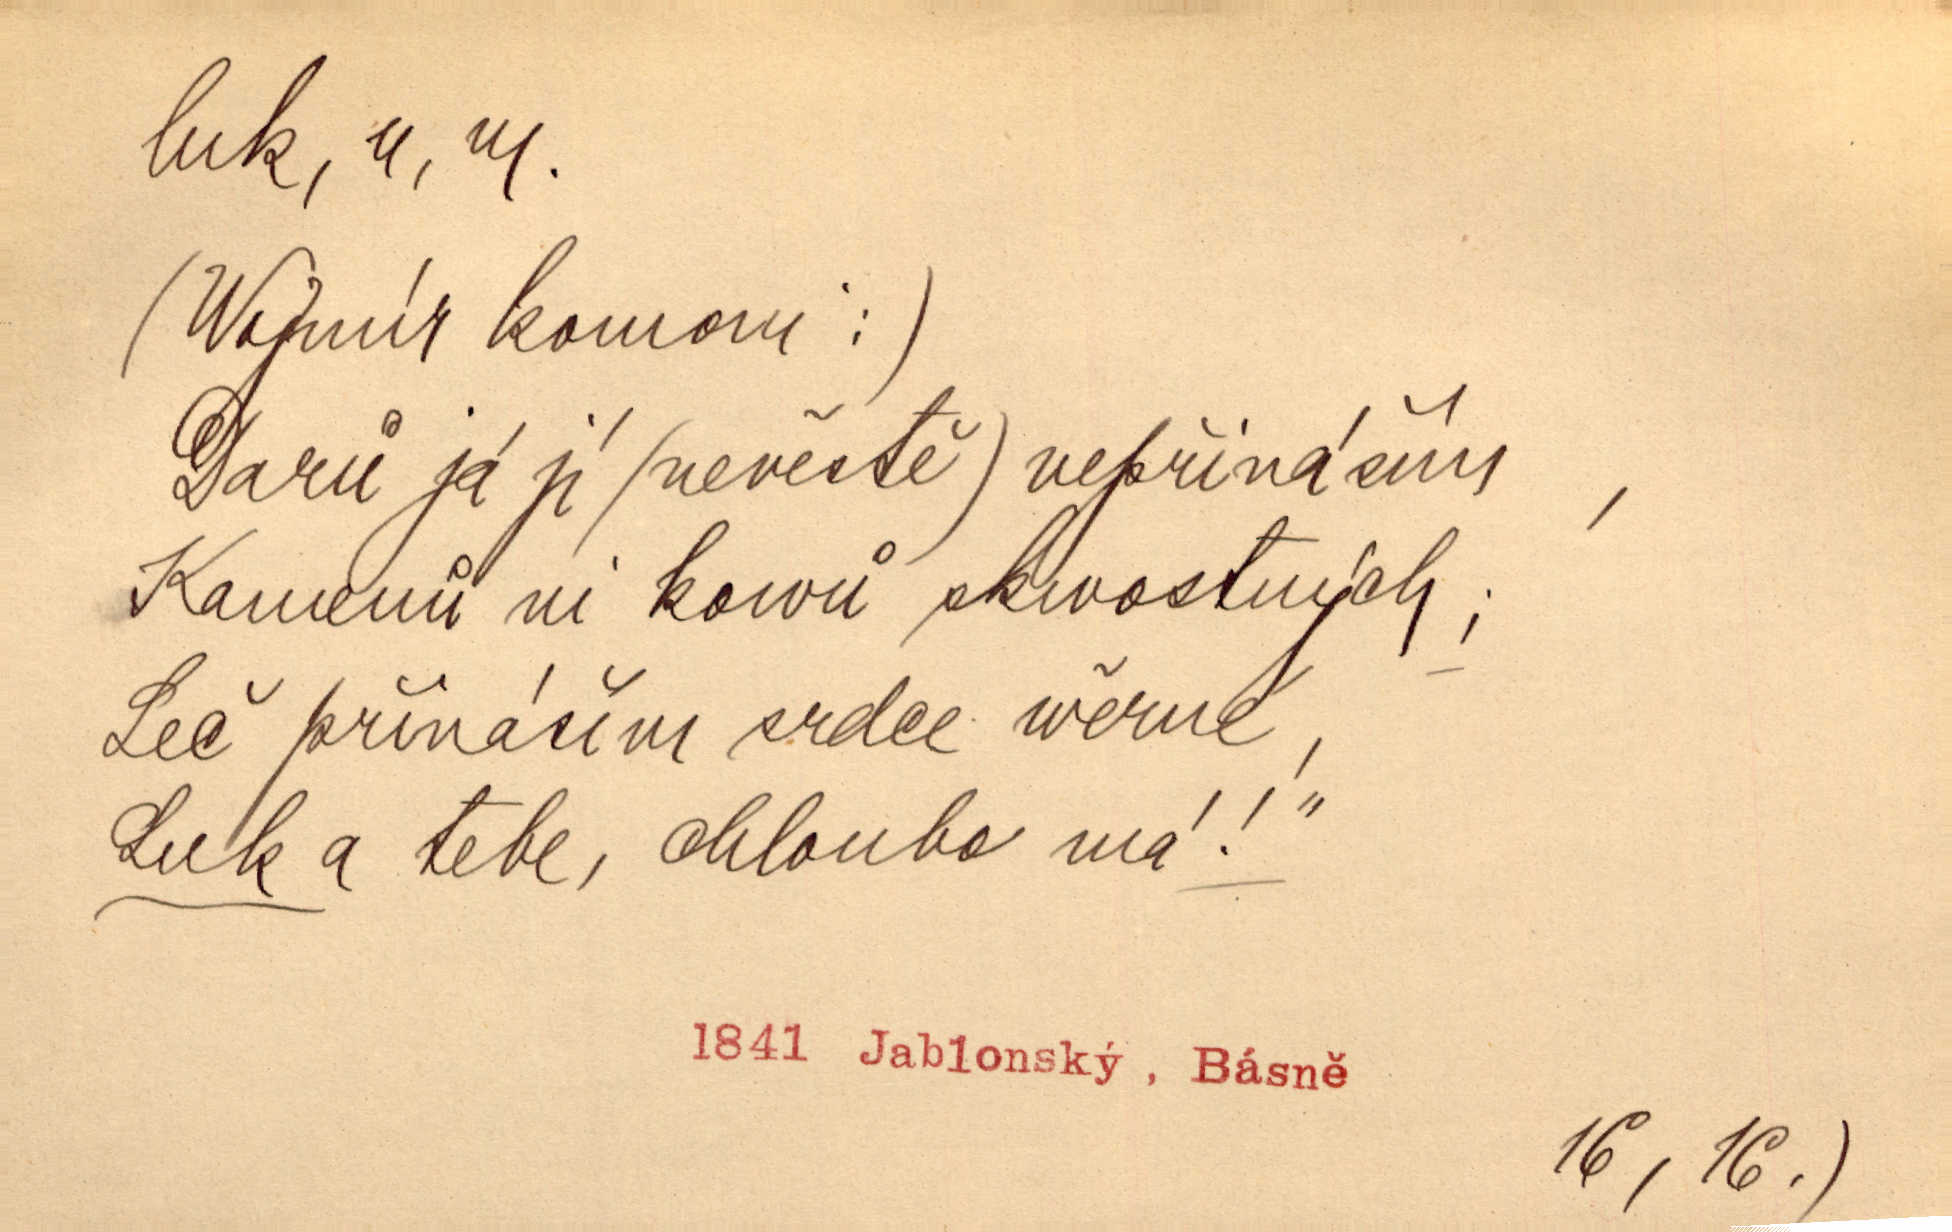 luk, u, m.
(Wojmír komoni:)
Darů já jí (nevěstě) nepřináším,
Kamenů ni kowů skwostných;
Leč přináším srdce wěrné,
Luk a tebe, chloubo má!"
1841 Jablonský, Básně
16, 16.)